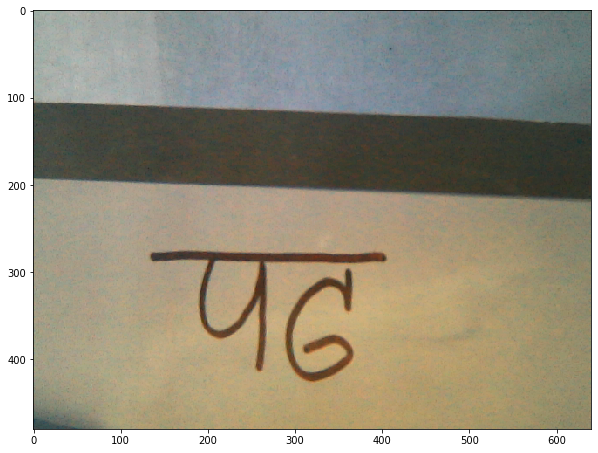 0
100
200
300
पढ
400
0 100 200 300 400 500 600